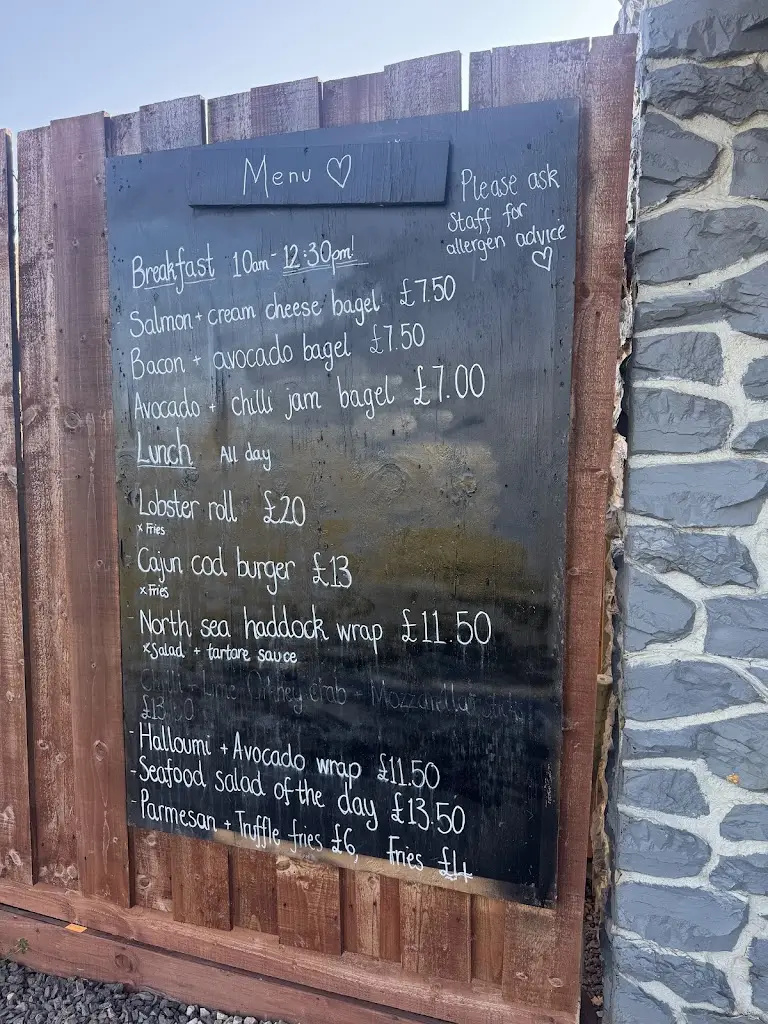 Menu ♡
Please ask
Staff for
allergen advice
♡
Breakfast 10am - 12:30pm!
Salmon + cream cheese bagel £7.50
Bacon + avocado bagel £7.50
Avocado + chilli jam bagel £7.00
Lunch All day
Lobster roll £20
x Fries
Cajun cod burger £13
x Fries
- North sea haddock wrap £11.50
x Salad + tartare sauce
Lime crab + Mozzarella
- Halloumi + Avocado wrap £11.50
- Seafood salad of the day £13.50
- Parmesan + Truffle fries £6, Fries £4